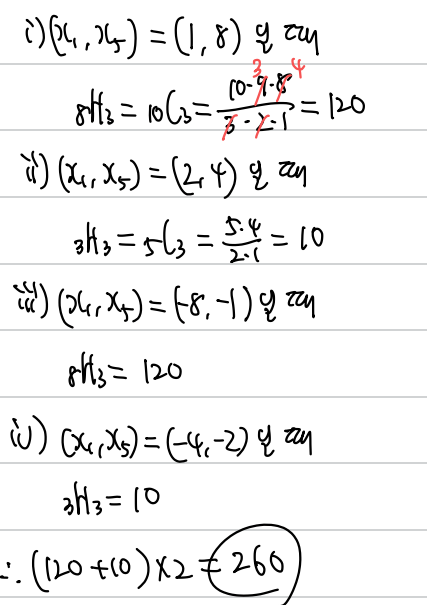 i) (x₁, x₅) = (1, 8) 일 때
₈H₃ = ₁₀C₃ = (10·9·8)/(3·2·1) = 120
3 4
ii) (x₁, x₅) = (2, 4) 일 때
₃H₃ = ₅C₃ = (5·4)/(2·1) = 10
iii) (x₁, x₅) = (-8, -1) 일 때
₈H₃ = 120
iv) (x₁, x₅) = (-4, -2) 일 때
₃H₃ = 10
∴ (120 + 10) × 2 = 260